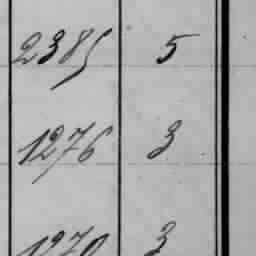 2385 5
1276 3
1270 3